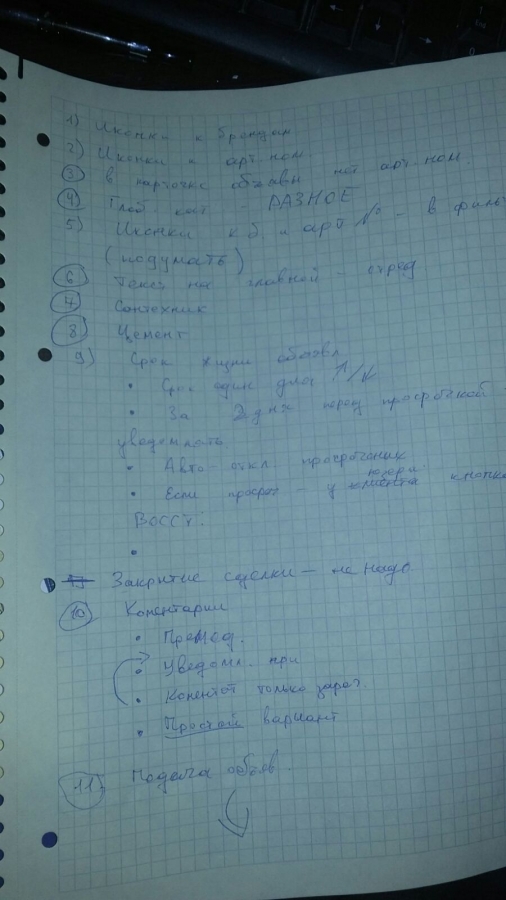 1) Иконки к брендам
2) Иконки к арт. ном.
3) В карточке объявы нет арт. ном.
4) Глоб. кат - РАЗНОЕ
5) Иконки к б. и арт № - в филь
(подумать)
6) Текст на главной - отред.
7) Сантехник
8) Цемент
9) Срок жизни объявл
• Срок один для ↑/
• За 2 дня перед просрочкой -
уведомлять
• Авто-откл. просроченик
• Если проср - у клиента юзера кнопка
Восст:
•
Закрытие сделки - не надо
10) Коментарии
• Премод.
• Уведомл. при
• Коментот только зарег.
• Простой вариант
11) Подача объяв.